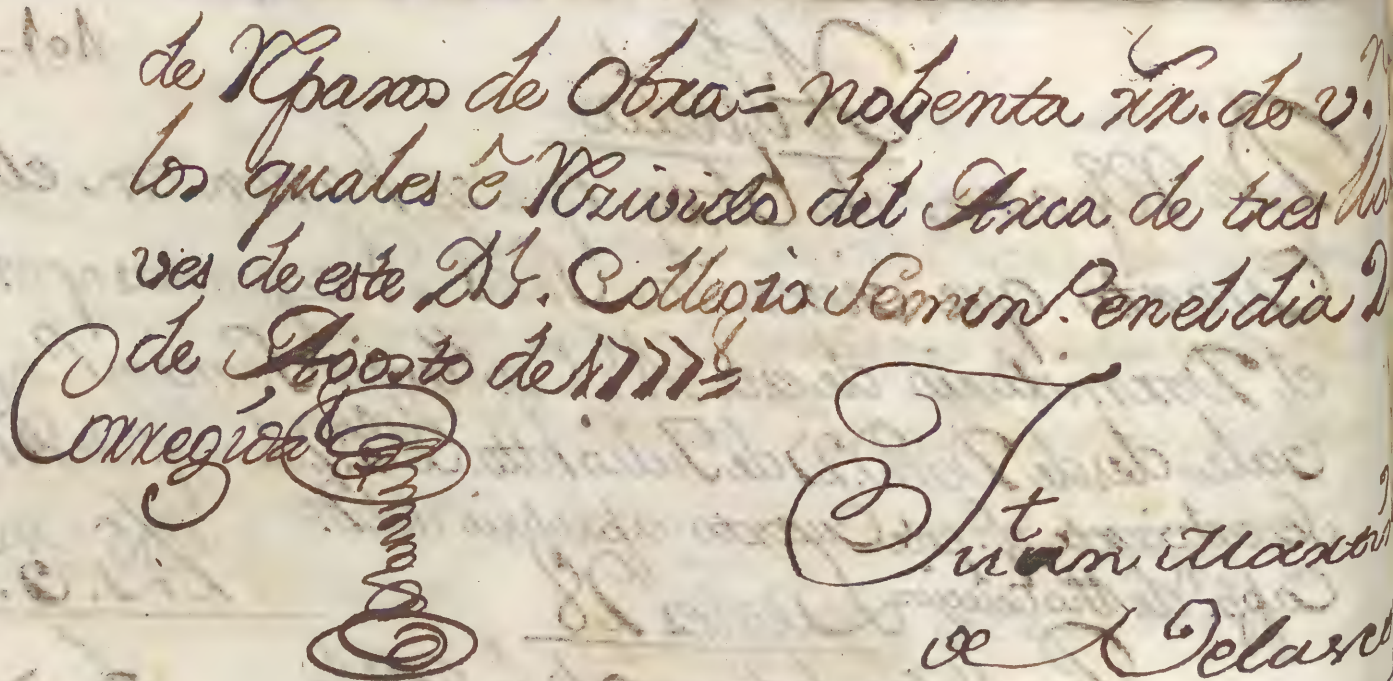 de Rparos de Obra = nobenta rr. de v.
los quales ê Rzivido del Arca de tres lla
ves de este Rl. Collegio Semin.º en el dia
de Agosto de 1777 =
Corregida
Juan Martin
de Velasc